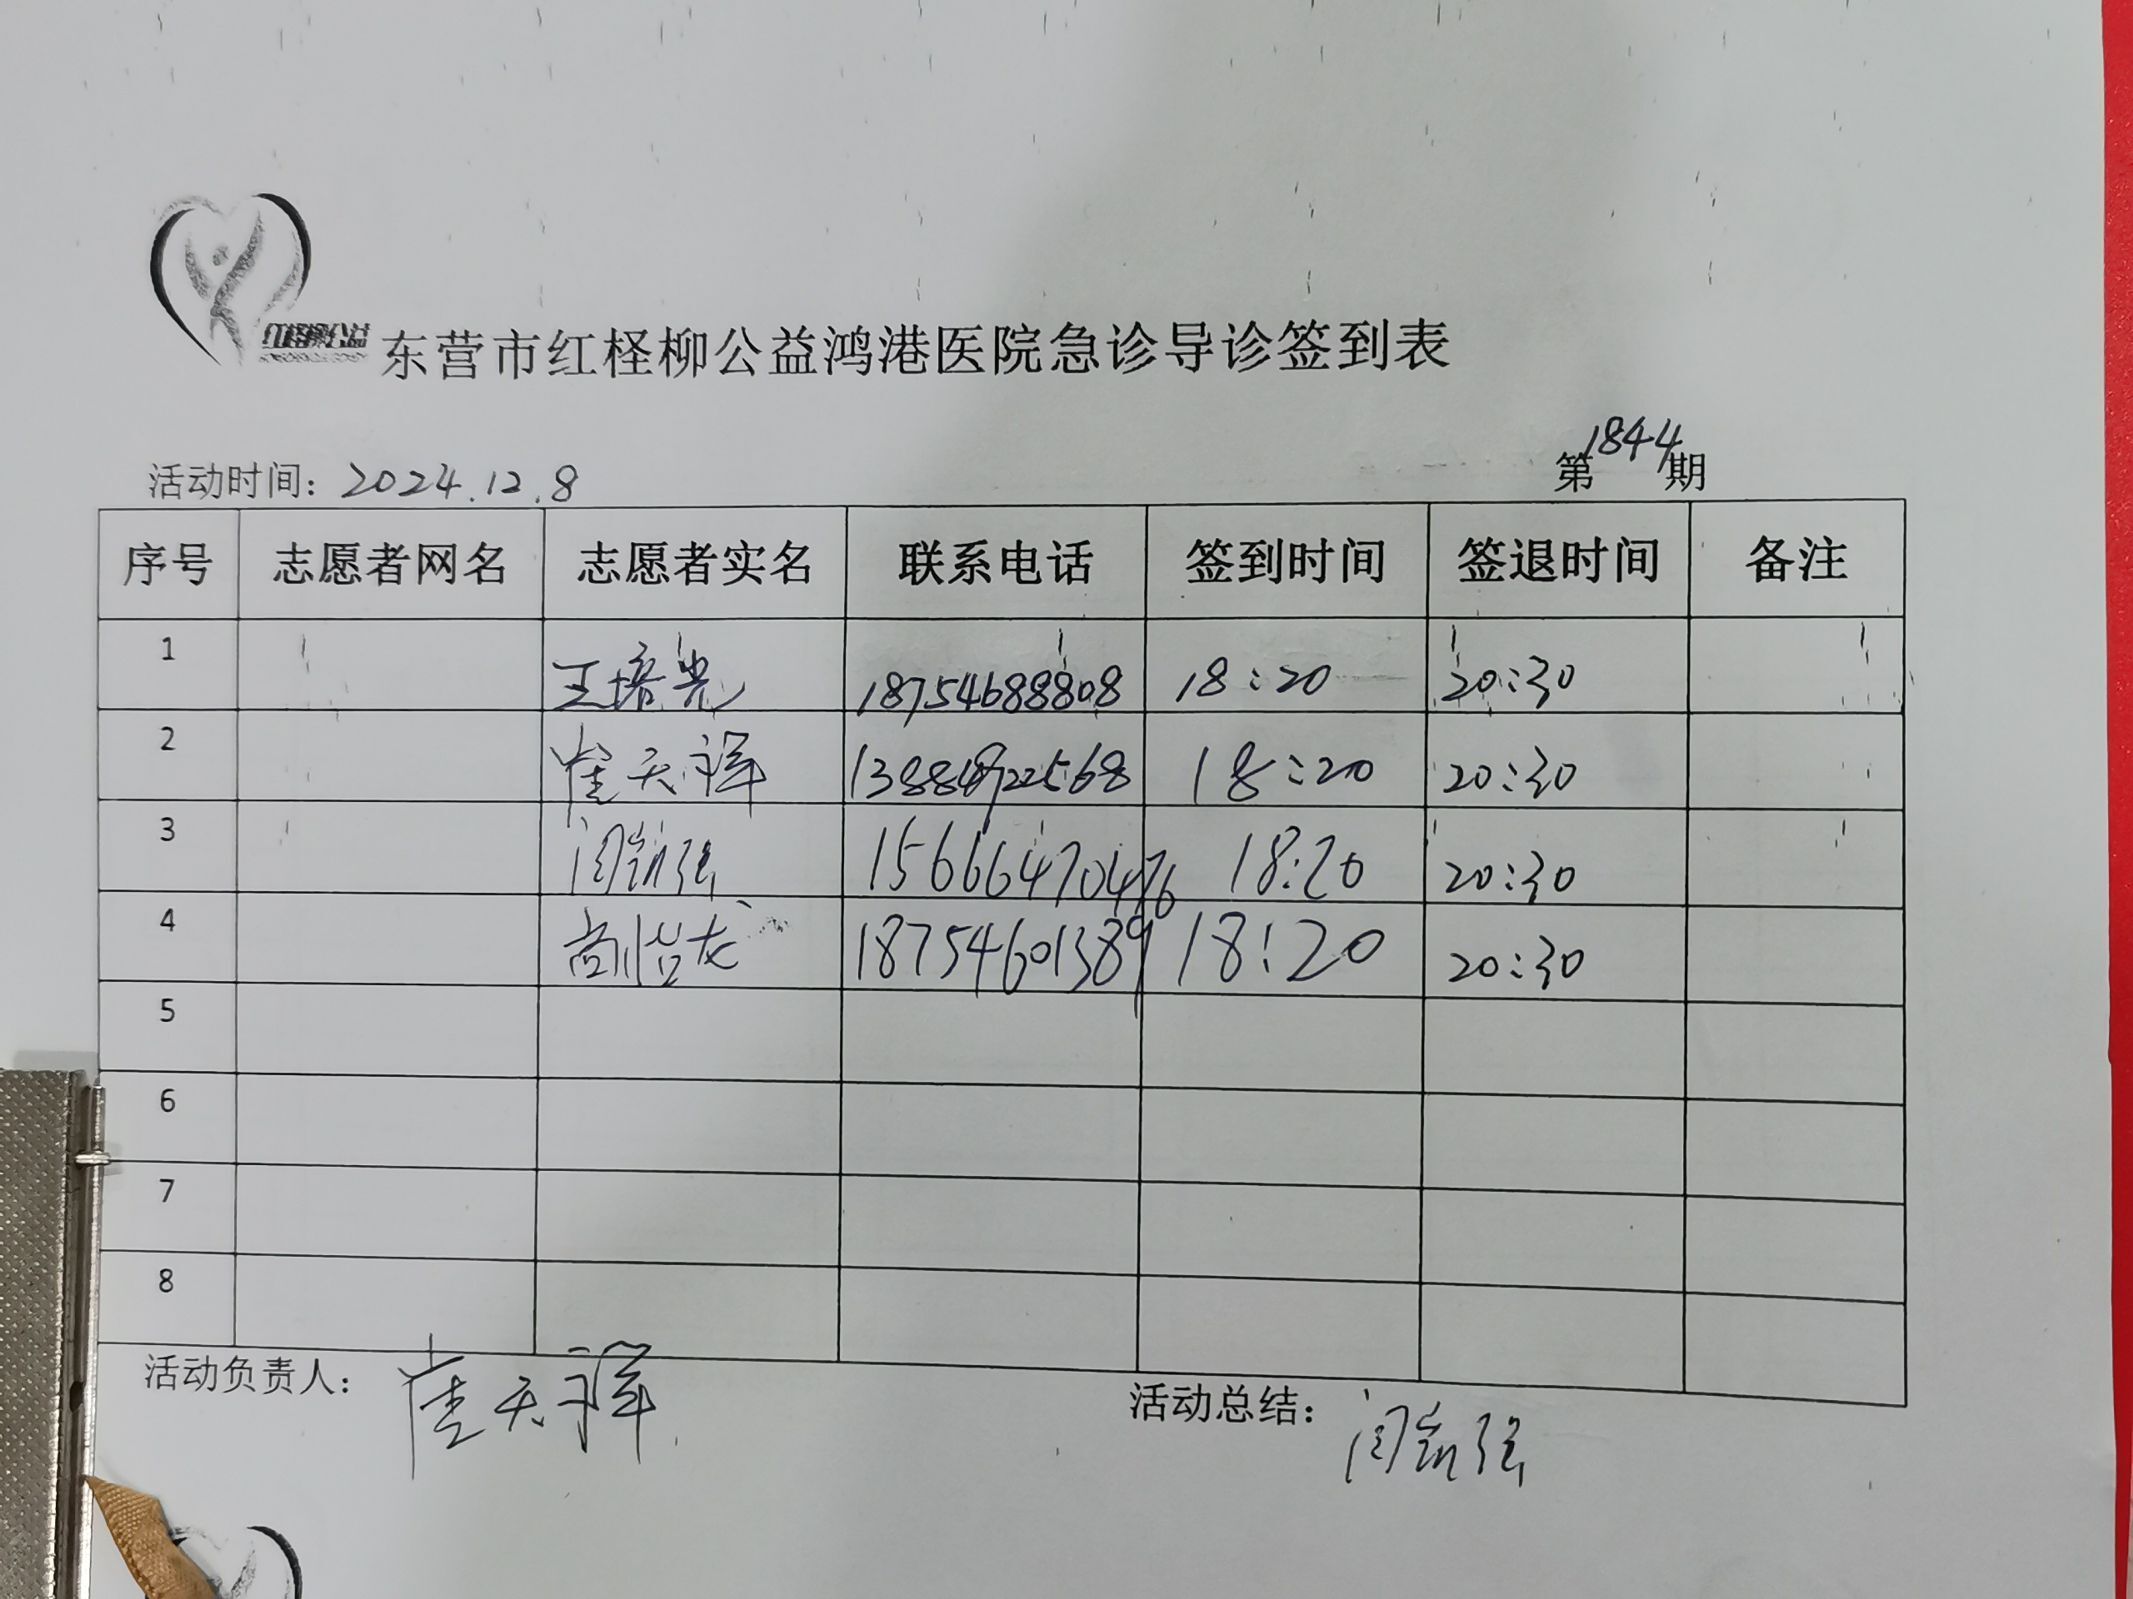 东营市红柽柳公益鸿港医院急诊导诊签到表
第1844期
活动时间：2024.12.8
序号 志愿者网名 志愿者实名 联系电话 签到时间 签退时间 备注
1 王培光 18754688808 18:20 20:30
2 崔天祥 18:20 20:30
3 闫凯强 15666470476 18:20 20:30
4 尚怡龙 18754601389 18:20 20:30
5
6
7
8
活动负责人：崔天祥
活动总结：闫凯强